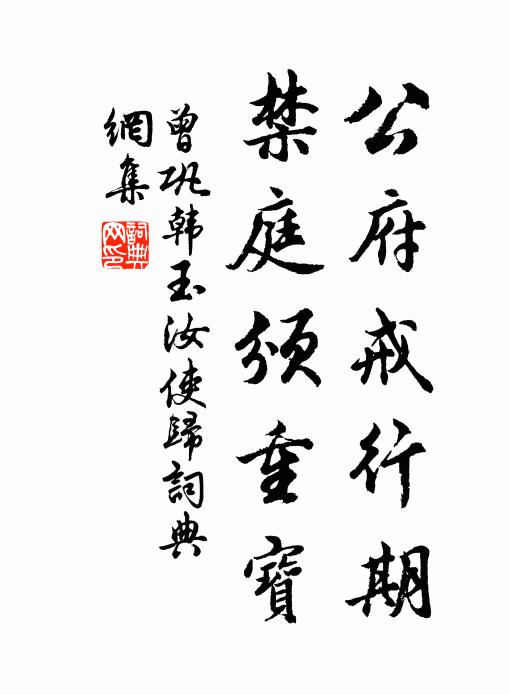 公府戒行期
禁庭須重寶
曾巩韩玉汝使歸詞典
網集
詞典网印